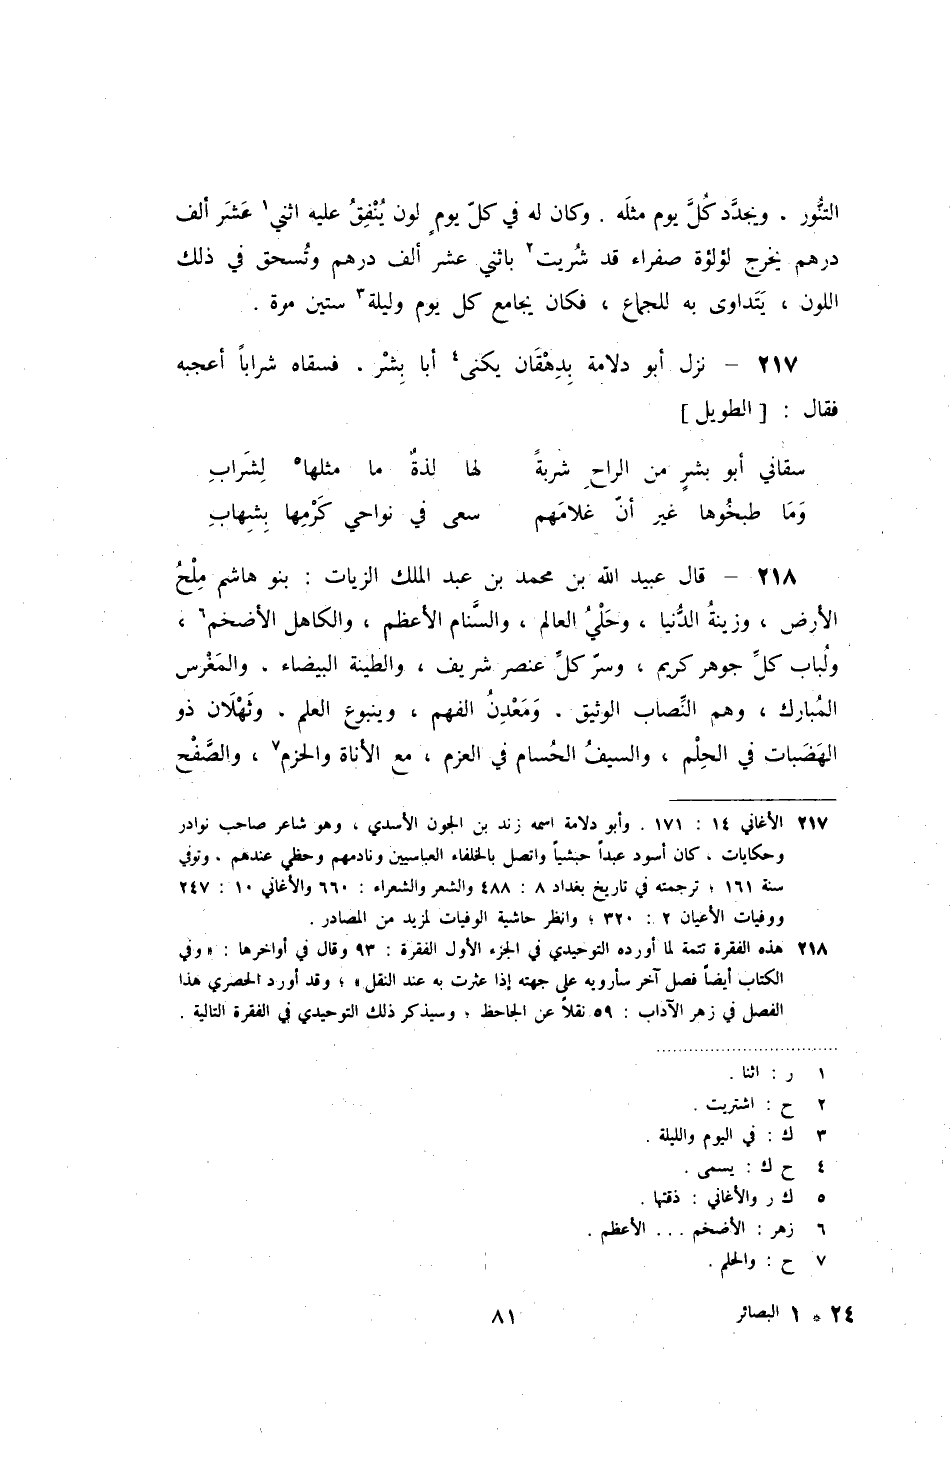 التنُّور . ويجدَّد كُلَّ يوم مثلَه . وكان له في كلّ يومٍ لون يُنْفِقُ عليه اثني١ عَشَر ألف
درهم يخرج لؤلؤة صفراء قد شُريت٢ باثني عشر ألف درهم وتُسحق في ذلك
اللون ، يَتَداوى به للجماع ، فكان يجامع كل يوم وليلة٣ ستين مرة .
٢١٧ – نزل أبو دلامة بِدِهْقَان يكنى٤ أبا بِشْر . فسقاه شراباً أعجبه
فقال : [ الطويل ]
سقاني أبو بشرٍ من الراحِ شربةً لها لذةٌ ما مثلها٥ لِشَرابِ
وَمَا طبخُوها غير أنّ غلامَهم سعى في نواحي كَرْمِها بِشِهابِ
٢١٨ – قال عبيد الله بن محمد بن عبد الملك الزيات : بنو هاشم مِلْحُ
الأرض ، وزينةُ الدُّنيا ، وحَلْيُ العالم ، والسَّنام الأعظم ، والكاهل الأضخم٦ ،
ولُباب كلِّ جوهر كريم ، وسرّ كلِّ عنصر شريف ، والطينة البيضاء . والمَغْرس
المُبارك ، وهم النِّصاب الوثيق . وَمَعْدِنُ الفهم ، وينبوع العلم . وثَهْلَان ذو
الهَضَبات في الحِلْم ، والسيفُ الحُسام في العزم ، مع الأناة والحزم٧ ، والصَّفْح
٢١٧ الأغاني ١٤ : ١٧١ . وأبو دلامة اسمه زند بن الجون الأسدي ، وهو شاعر صاحب نوادر
وحكايات ، كان أسود عبداً حبشياً واتصل بالخلفاء العباسيين ونادمهم وحظي عندهم . وتوفي
سنة ١٦١ ؛ ترجمته في تاريخ بغداد ٨ : ٤٨٨ والشعر والشعراء : ٦٦٠ والأغاني ١٠ : ٢٤٧
ووفيات الأعيان ٢ : ٣٢٠ ؛ وانظر حاشية الوفيات لمزيد من المصادر .
٢١٨ هذه الفقرة تتمة لما أورده التوحيدي في الجزء الأول الفقرة : ٩٣ وقال في أواخرها : « وفي
الكتاب أيضاً فصل آخر سأرويه على جهته إذا عثرت به عند النقل » ؛ وقد أورد الحصري هذا
الفصل في زهر الآداب : ٥٩ نقلاً عن الجاحظ ؛ وسيذكر ذلك التوحيدي في الفقرة التالية .
١ ر : اثنا .
٢ ح : اشتريت .
٣ ك : في اليوم والليلة .
٤ ح ك : يسمى .
٥ ك ر والأغاني : ذقتها .
٦ زهر : الأضخم ... الأعظم .
٧ ح : والحلم .
٢٤ * ١ البصائر ٨١